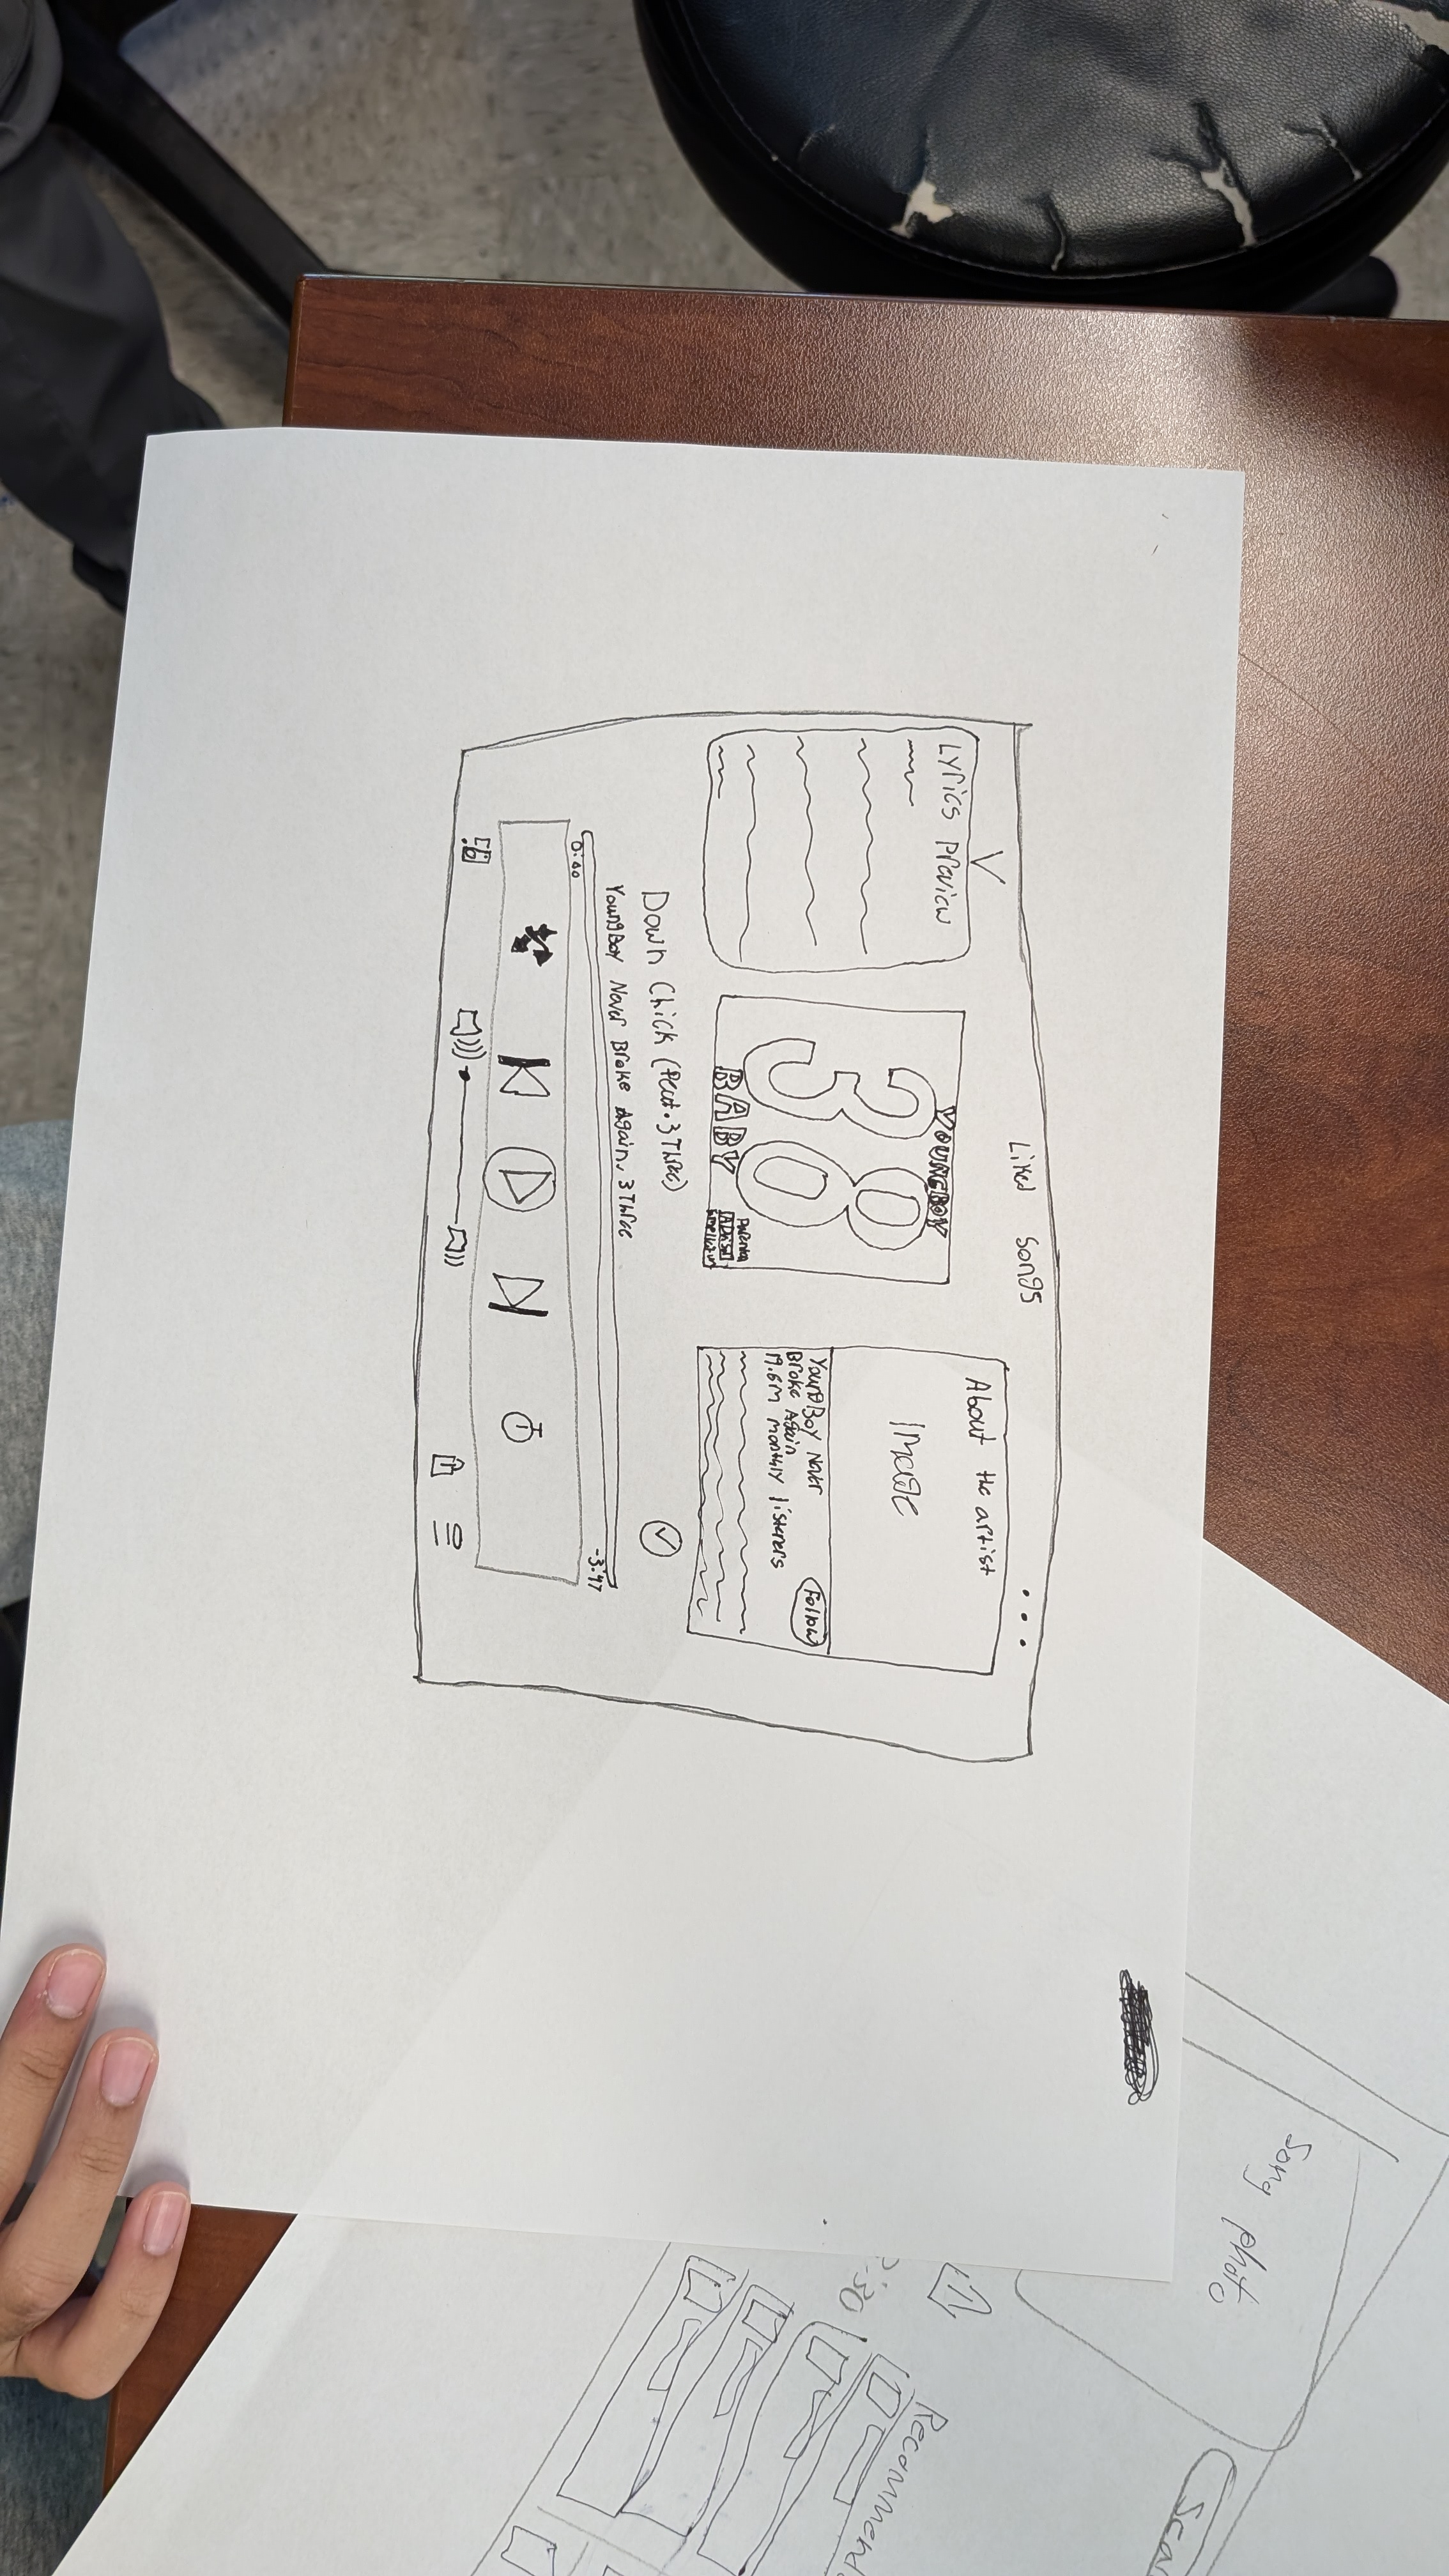 Liked Songs
Lyrics Preview
YOUNGBOY
38
BABY
About the artist
Image
YoungBoy Never
Broke Again
Follow
19.6M monthly listeners
Down Chick (feat. 3Three)
YoungBoy Never Broke Again, 3Three
0:00
-3:47
Song photo
:30
Recommend
Sear